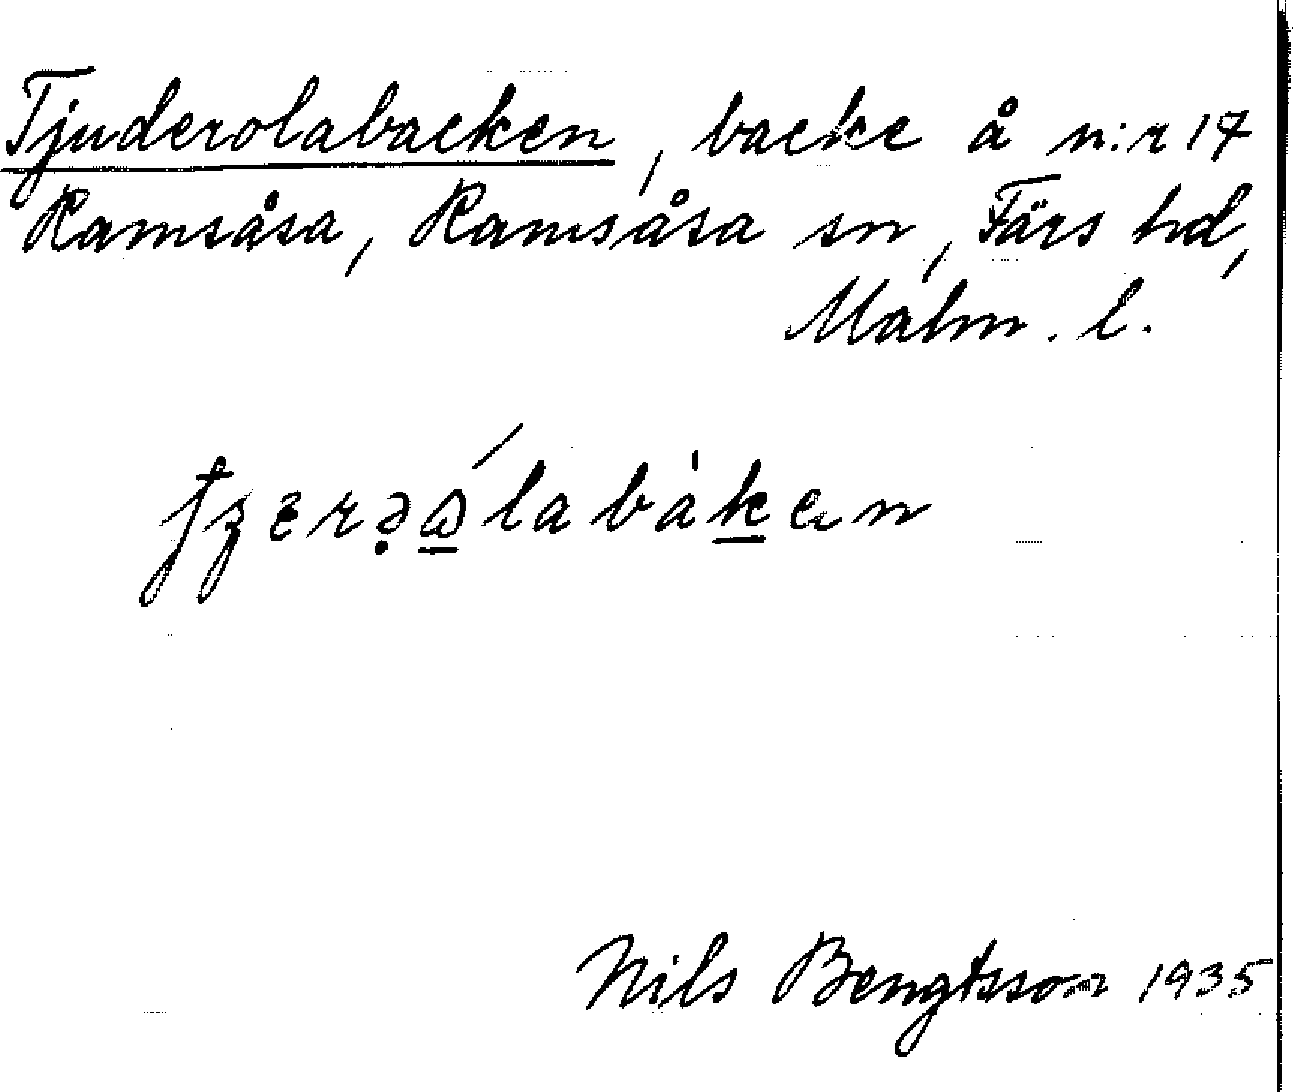 Tjuderolabacken, backe å n:r 17
Ramsåsa, Ramsåsa sn, Färs hd,
Malm. l.
Nils Bengtsson 1935